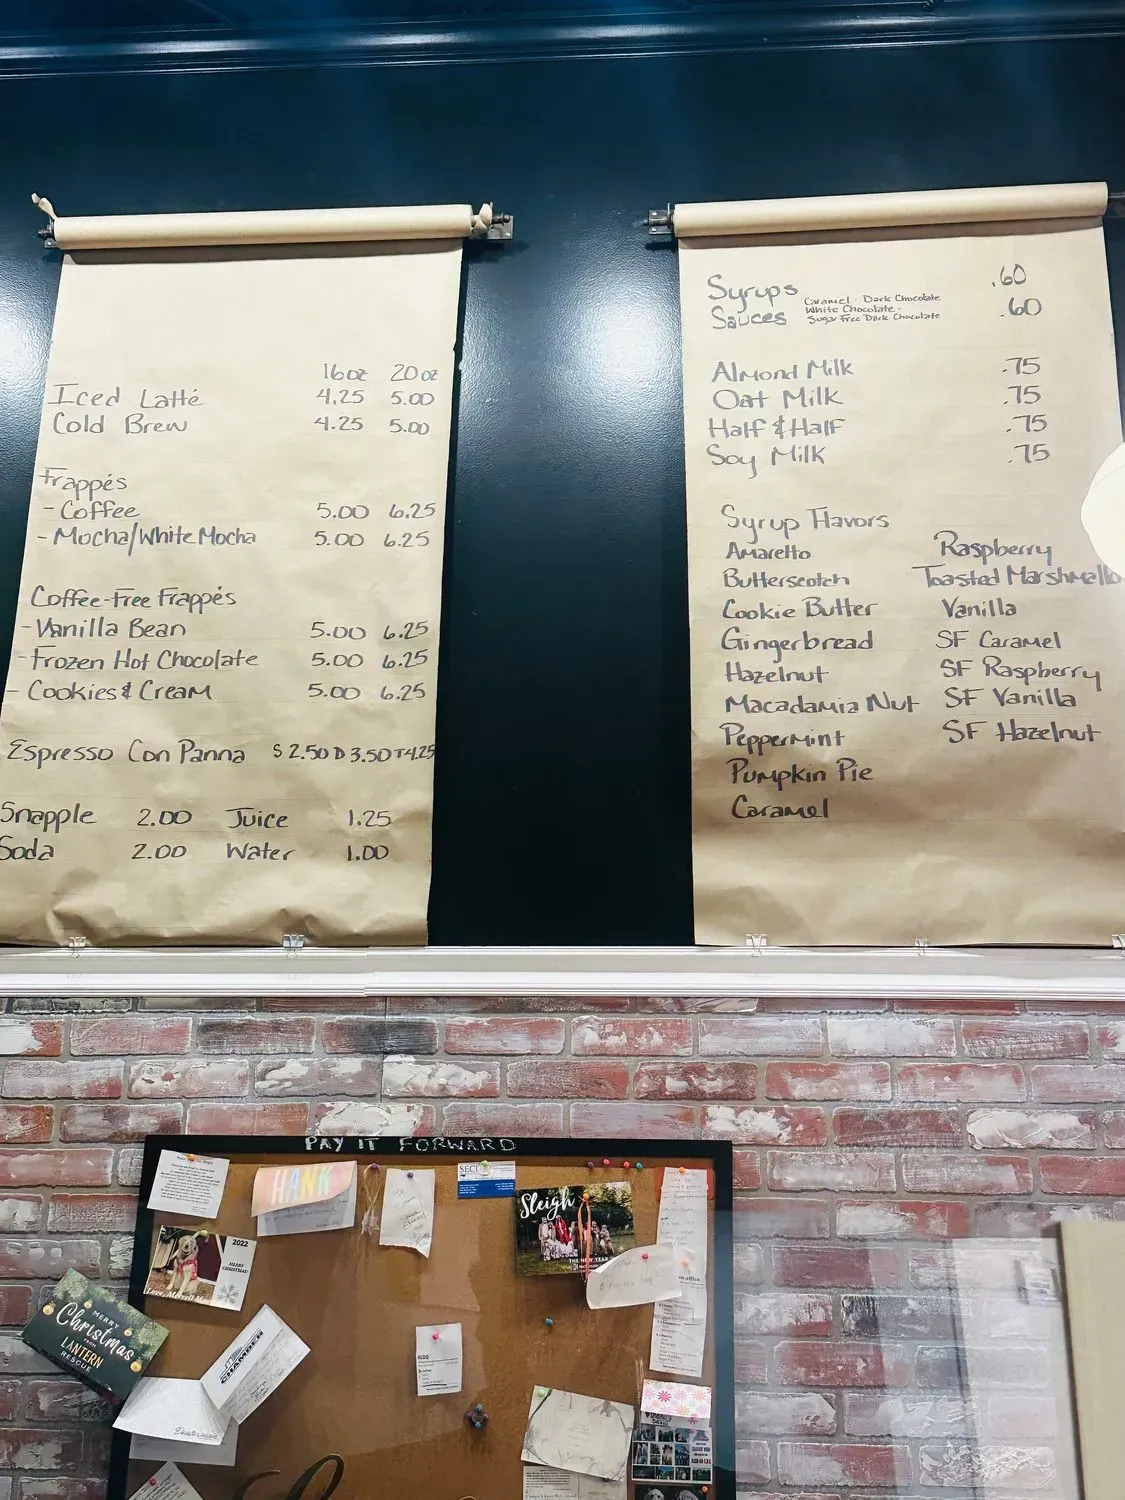 16oz 20oz
Iced Latté 4.25 5.00
Cold Brew 4.25 5.00
Frappés
- Coffee 5.00 6.25
- Mocha/White Mocha 5.00 6.25
Coffee-Free Frappés
- Vanilla Bean 5.00 6.25
- Frozen Hot Chocolate 5.00 6.25
- Cookies & Cream 5.00 6.25
Espresso Con Panna S 2.50 D 3.50 T 4.25
Snapple 2.00 Juice 1.25
Soda 2.00 Water 1.00
Syrups .60
Sauces Caramel - Dark Chocolate .60
White Chocolate -
Sugar Free Dark Chocolate
Almond Milk .75
Oat Milk .75
Half & Half .75
Soy Milk .75
Syrup Flavors
Amaretto Raspberry
Butterscotch Toasted Marshmallo
Cookie Butter Vanilla
Gingerbread SF Caramel
Hazelnut SF Raspberry
Macadamia Nut SF Vanilla
Peppermint SF Hazelnut
Pumpkin Pie
Caramel
PAY IT FORWARD
HANK
SECU
Sleigh
THE NEW YEAR
2022
MERRY
CHRISTMAS
MERRY
Christmas
FROM
LANTERN
RESCUE
CHAMBER